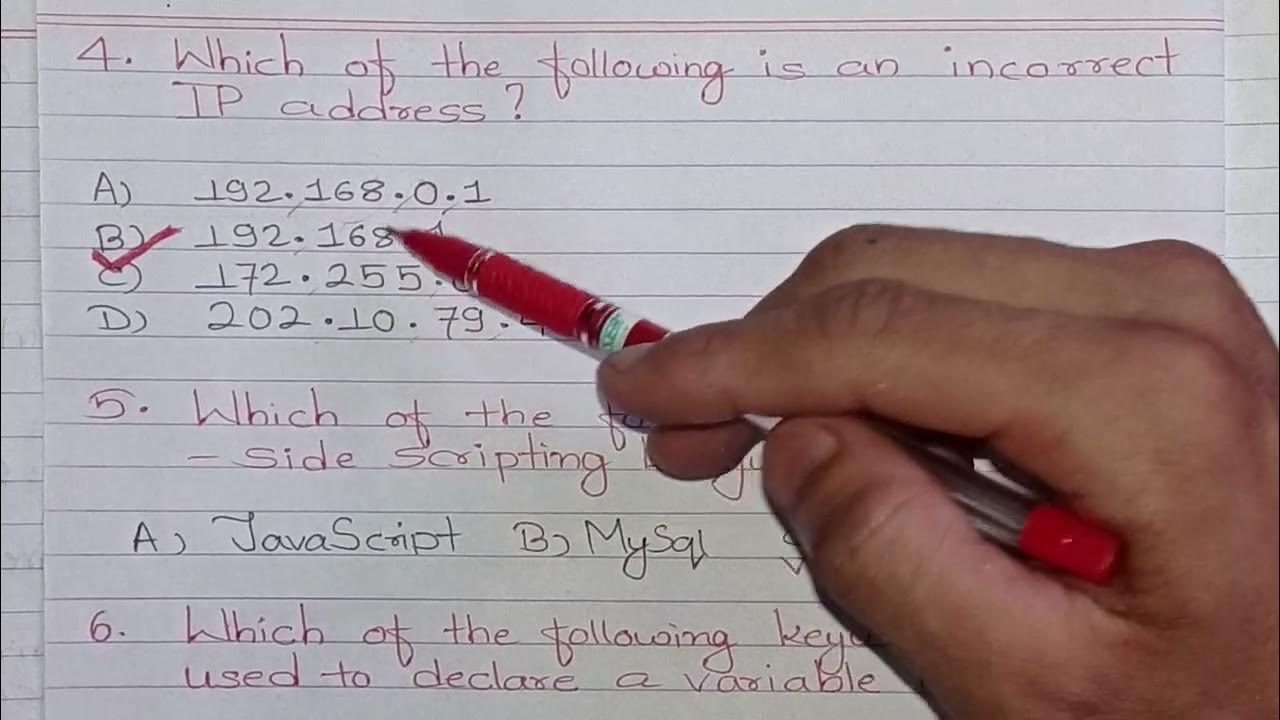 4. Which of the following is an incorrect
IP address?
A) 192.168.0.1
B) 192.168
C) 172.255.
D) 202.10.79.
5. Which of the
- side scripting
A) JavaScript B) MySql
6. Which of the following
used to declare a variable